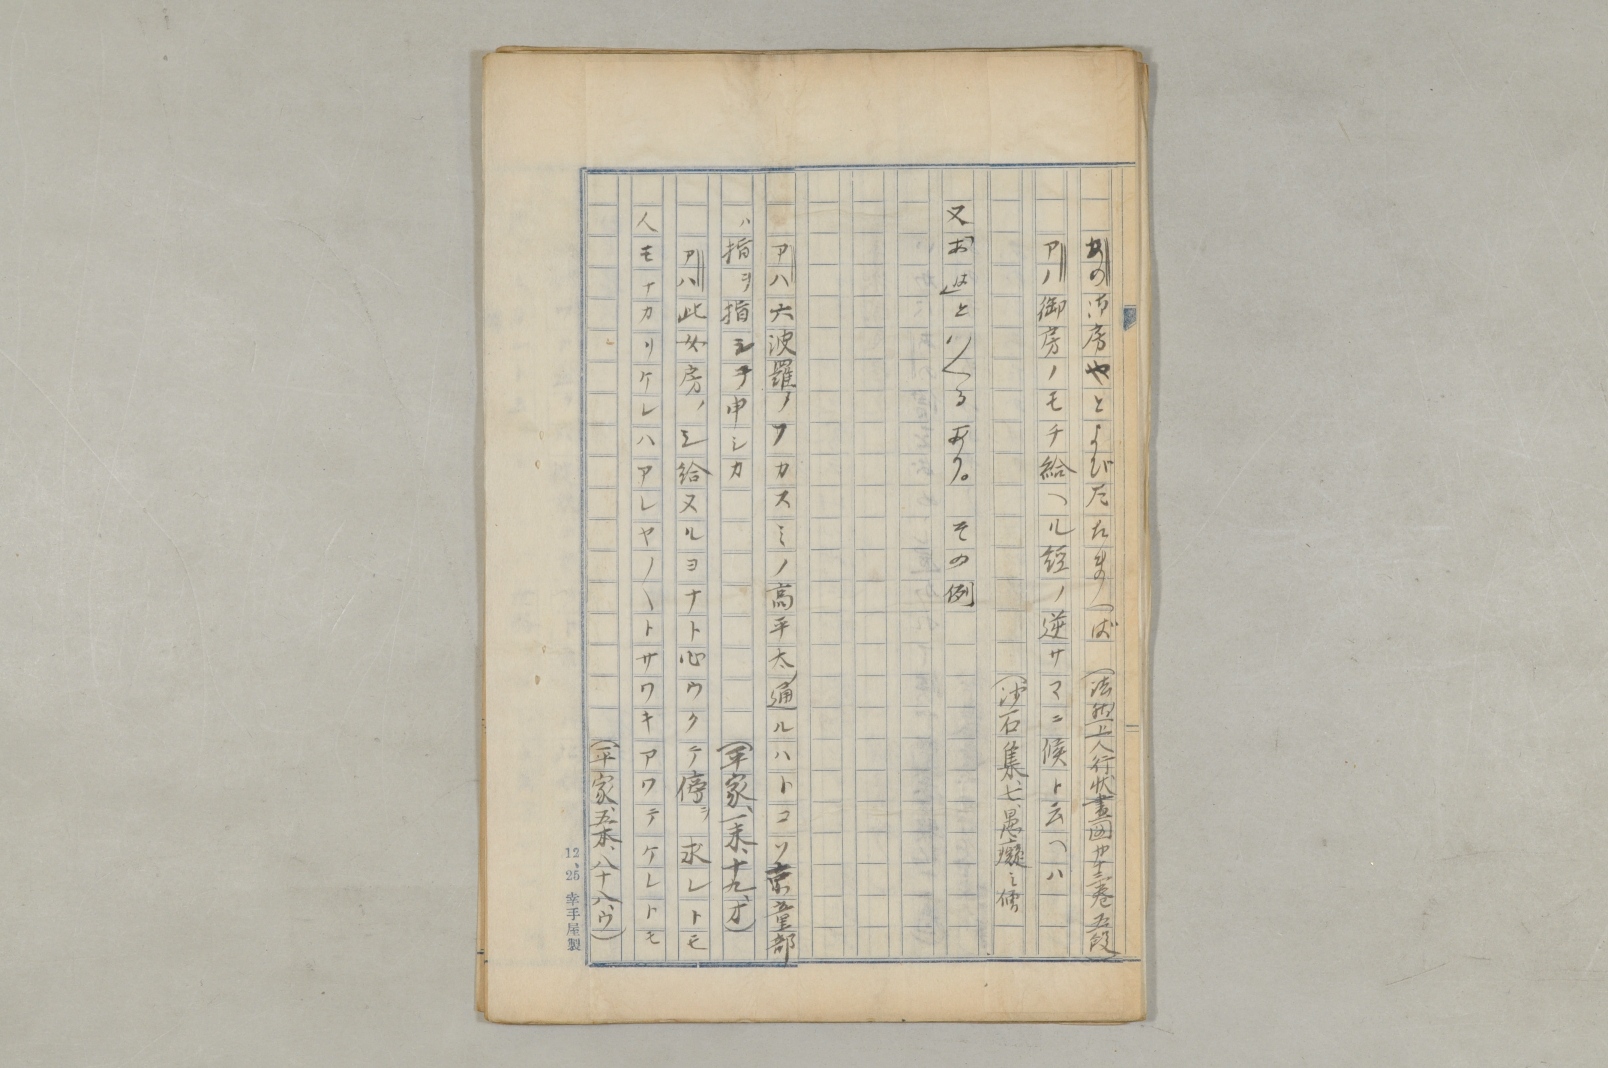 あの御房やとよびたまの〵ば（法然上人行状畫図廿三巻五段
アハ御房ノモチ給ヘル経ノ逆サマニ候ト云ヘハ
（沙石集、七、愚癡之僧
又お 返と いへるあり。その例
アハ六波羅ノフカスミノ高平太通ルハトコソ京童部
ハ指ヲ指シテ申シカ（平家、一末、十九、オ）
アハ此女房ノシ給ヌルヨナト心ウクテ停ヲ求レトモ
人モナカリケレハアレヤ〳〵トサワキアワテケレトモ
（平家、五本、八十八、ウ）
12、25 幸手屋製